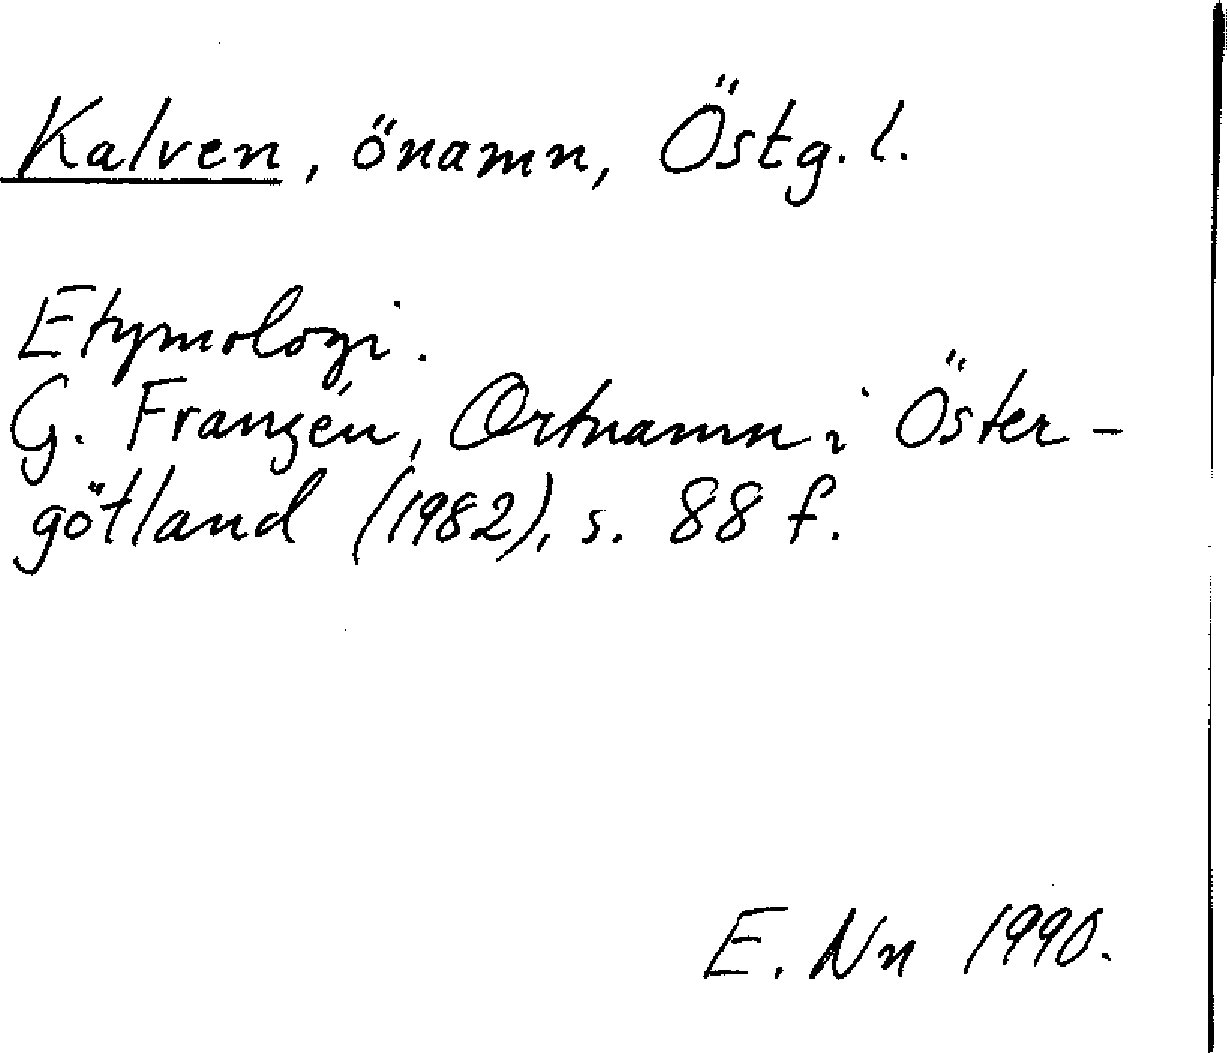 Kalven, önamn, Östg. l.
Etymologi.
G. Franzén, Ortnamn i Öster-
götland (1982), s. 88 f.
E. Nn 1990.